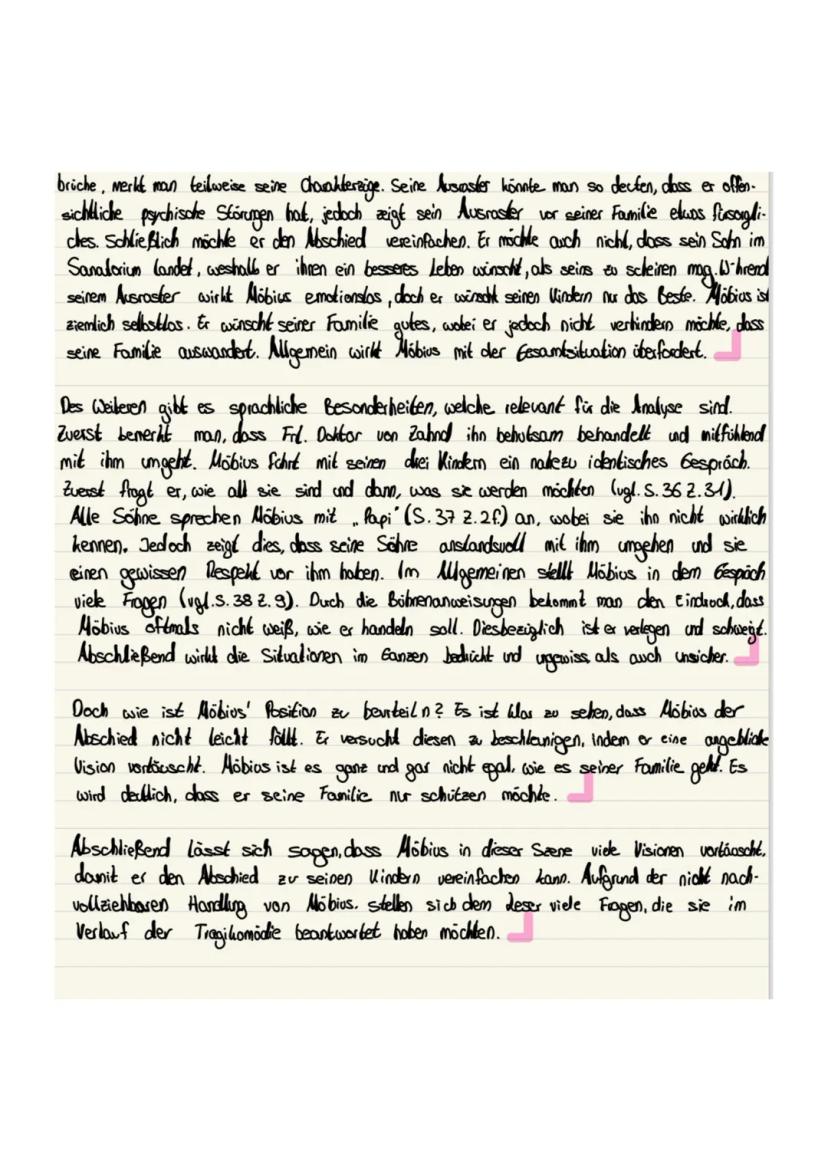 brüche, merkt man teilweise seine Charakterzüge. Seine Ausraster könnte man so deuten, dass er offen-
sichtliche psychische Störungen hat, jedoch zeigt sein Ausraster vor seiner Familie etwas fürsorgli-
ches. Schließlich möchte er den Abschied vereinfachen. Er möchte auch nicht, dass sein Sohn im
Sanatorium landet, weshalb er ihnen ein besseres Leben wünscht, als seins zu scheinen mag. W-hrend
seinem Ausraster wirkt Möbius emotionslos, doch er wünscht seinen Kindern nur das Beste. Möbius ist
ziemlich selbstlos. Er wünscht seiner Familie gutes, wobei er jedoch nicht verhindern möchte, dass
seine Familie auswandert. Allgemein wirkt Möbius mit der Gesamtsituation überfordert.
Des Weiteren gibt es sprachliche Besonderheiten, welche relevant für die Analyse sind.
Zuerst bemerkt man, dass Frl. Doktor von Zahnd ihn behutsam behandelt und mitfühlend
mit ihm umgeht. Möbius führt mit seinen drei Kindern ein nahezu identisches Gespräch.
Zuerst fragt er, wie alt sie sind und dann, was sie werden möchten (vgl. S. 36 Z. 31).
Alle Söhne sprechen Möbius mit „Papi" (S. 37 Z. 2f.) an, wobei sie ihn nicht wirklich
kennen. Jedoch zeigt dies, dass seine Söhne anstandsvoll mit ihm umgehen und sie
einen gewissen Respekt vor ihm haben. Im Allgemeinen stellt Möbius in dem Gespäch
viele Fragen (vgl. S. 38 Z. 9). Durch die Bühnenanweisungen bekommt man den Eindruck, dass
Möbius oftmals nicht weiß, wie er handeln soll. Diesbezüglich ist er verlegen und schweigt.
Abschließend wirkt die Situationen im Ganzen bedrückt und ungewiss, als auch unsicher.
Doch wie ist Möbius' Position zu beurteil n? Es ist klar zu sehen, dass Möbius der
Abschied nicht leicht fällt. Er versucht diesen zu beschleunigen, indem er eine angebliche
Vision vortäuscht. Möbius ist es ganz und gar nicht egal, wie es seiner Familie geht. Es
wird deutlich, dass er seine Familie nur schützen möchte.
Abschließend lässt sich sagen, dass Möbius in dieser Szene viele Visionen vortäuscht,
damit er den Abschied zu seinen Kindern vereinfachen kann. Aufgrund der nicht nach-
vollziehbaren Handlung von Möbius. stellen sich dem Leser viele Fragen, die sie im
Verlauf der Tragikomödie beantwortet haben möchten.